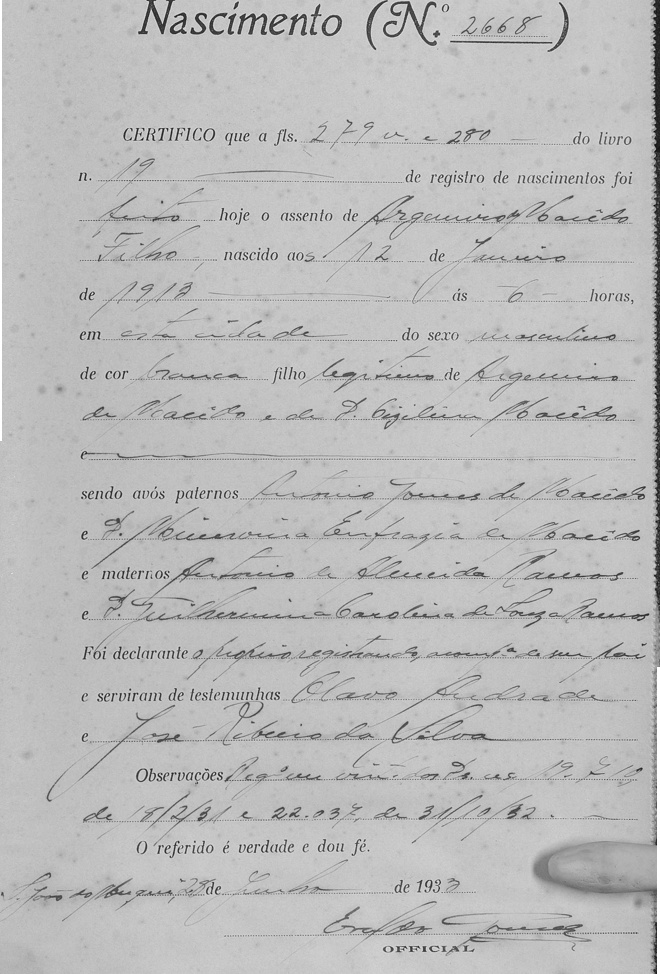 Nascimento (N.º 2668)
CERTIFICO que a fls. 279 v. e 280 do livro
n. 19 de registro de nascimentos foi
feito hoje o assento de Argemiro Macêdo
Filho, nascido aos 12 de Janeiro
de 1913 ás 6 horas,
em esta cidade do sexo masculino
de cor branca filho legitimo de Argemiro
de Macêdo e de D. Macêdo
e
sendo avós paternos Antonio Gomes de Macêdo
e D. Minervina Eufrazia de Macêdo
e maternos Antonio de Almeida Ramos
e D. Guilhermina Carolina de Souza Ramos
Foi declarante o proprio registrando, de seu pai
e serviram de testemunhas Olavo Andrade
e José Ribeiro da Silva
Observações 19.710,
de 18/2/31 e 22.037, de 31/10/32.
O referido é verdade e dou fé.
S. João do 28 de Junho de 1933
OFFICIAL